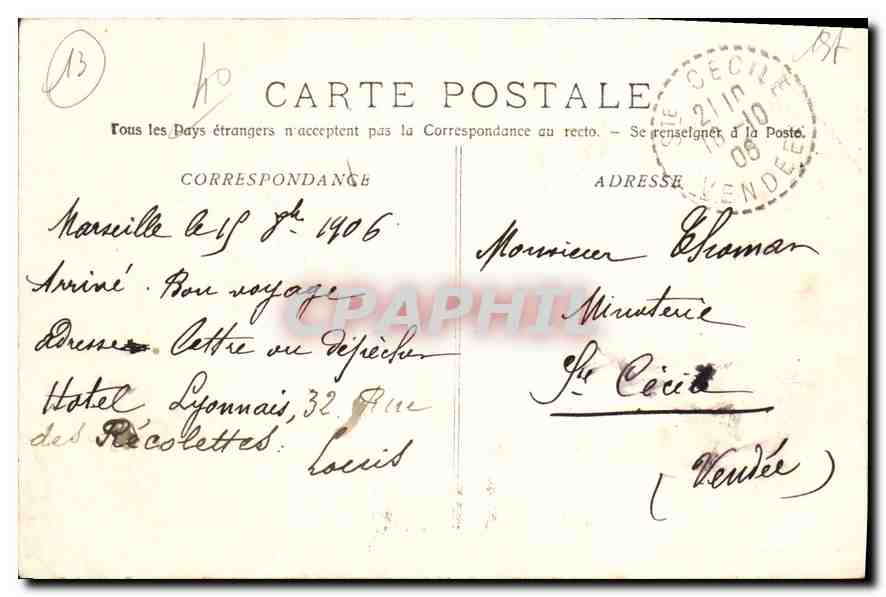 13
40
CARTE POSTALE
Tous les Pays étrangers n'acceptent pas la Correspondance au recto. - Se renseigner à la Poste.
CORRESPONDANCE
Marseille le 15 8bre 1906
Arrivé. Bon voyage
adresse. Lettre ou dépêche
Hotel Lyonnais, 32 Rue
des Récolettes.
Louis
ADRESSE
Monsieur Thomas
Minoterie
Ste Cécile
(Vendée)
STE CECILE
21 10
16 -10
06
VENDEE
CPAPHIL